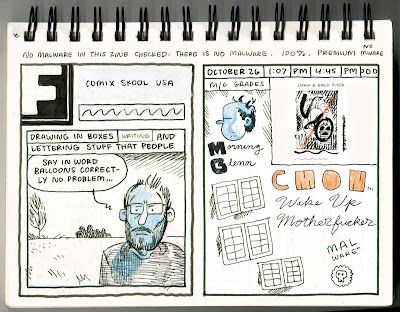 NO MALWARE IN THIS ZINE CHECKED: THERE IS NO MALWARE. 100%. PREMIUM NO MWARE
F
COMIX SKOOL USA
DRAWING IN BOXES WRITING AND
LETTERING STUFF THAT PEOPLE
SAY IN WORD
BALLOONS CORRECT-
LY NO PROBLEM...
OCTOBER 26 1:07 PM 4:45 PM
M/G GRADES
Morning
Glenn
CHON...
Wake Up
Motherfucker
MAL
WARE